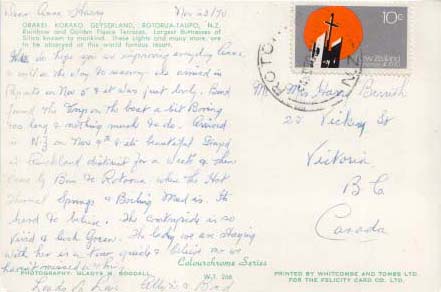 Dear Anne & Harry Nov 23/70
ORAKEI KORAKO GEYSERLAND, ROTORUA-TAUPO, N.Z.
Rainbow and Golden Fleece Terraces. Largest Buttresses of
Silica known to mankind. These sights and many more, are
to be observed at this world famous resort.
do hope you are improving everyday
the day to
on Nov 5 & it was just lovely.
found the Trip on the boat a bit Boring
too long & nothing much to do. Arrived
in N.Z on Nov & its beautiful Stayed
at Auckland district for a Week & then
Came by Bus to Rotorua where the Hot
Thermal Springs & Boiling Mud is. Its
hard to believe. The countryside is so
Vivid & lush Green. The lady we are Staying
with her is a Tour guide & believe me we
haven't missed a thing
Gladys & Bud
PHOTOGRAPHY: GLADYS M. GOODALL
Colourchrome Series
W.T. 266
PRINTED BY WHITCOMBE AND TOMBS LTD.
FOR THE FELICITY CARD CO. LTD.
10c
New Zealand
ROTO
N.Z.
Mr Mrs Harry
27 St
Victoria
B C
Canada